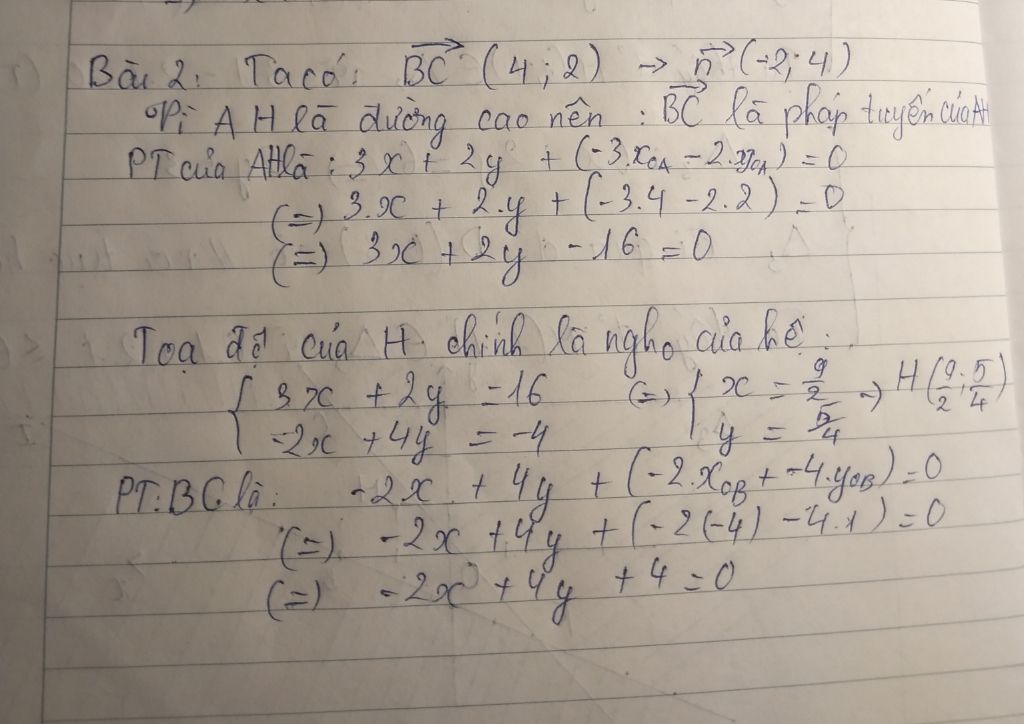 Bài 2: Ta có: BC→ (4; 2) → n→ (-2; 4)
Vì AH là đường cao nên : BC→ là pháp tuyến của AH
PT của AH là : 3x + 2y + (-3.xOA - 2.yOA) = 0
(=) 3.x + 2.y + (-3.4 - 2.2) = 0
(=) 3x + 2y - 16 = 0
Toạ độ của H chính là ngho của hệ :
{ 3x + 2y = 16 (=) { x = 9/2 → H(9/2; 5/4)
-2x + 4y = -4 y = 5/4
PT: BC là: -2x + 4y + (-2.xOB + -4.yOB) = 0
(=) -2x + 4y + (-2(-4) - 4.1) = 0
(=) -2x + 4y + 4 = 0